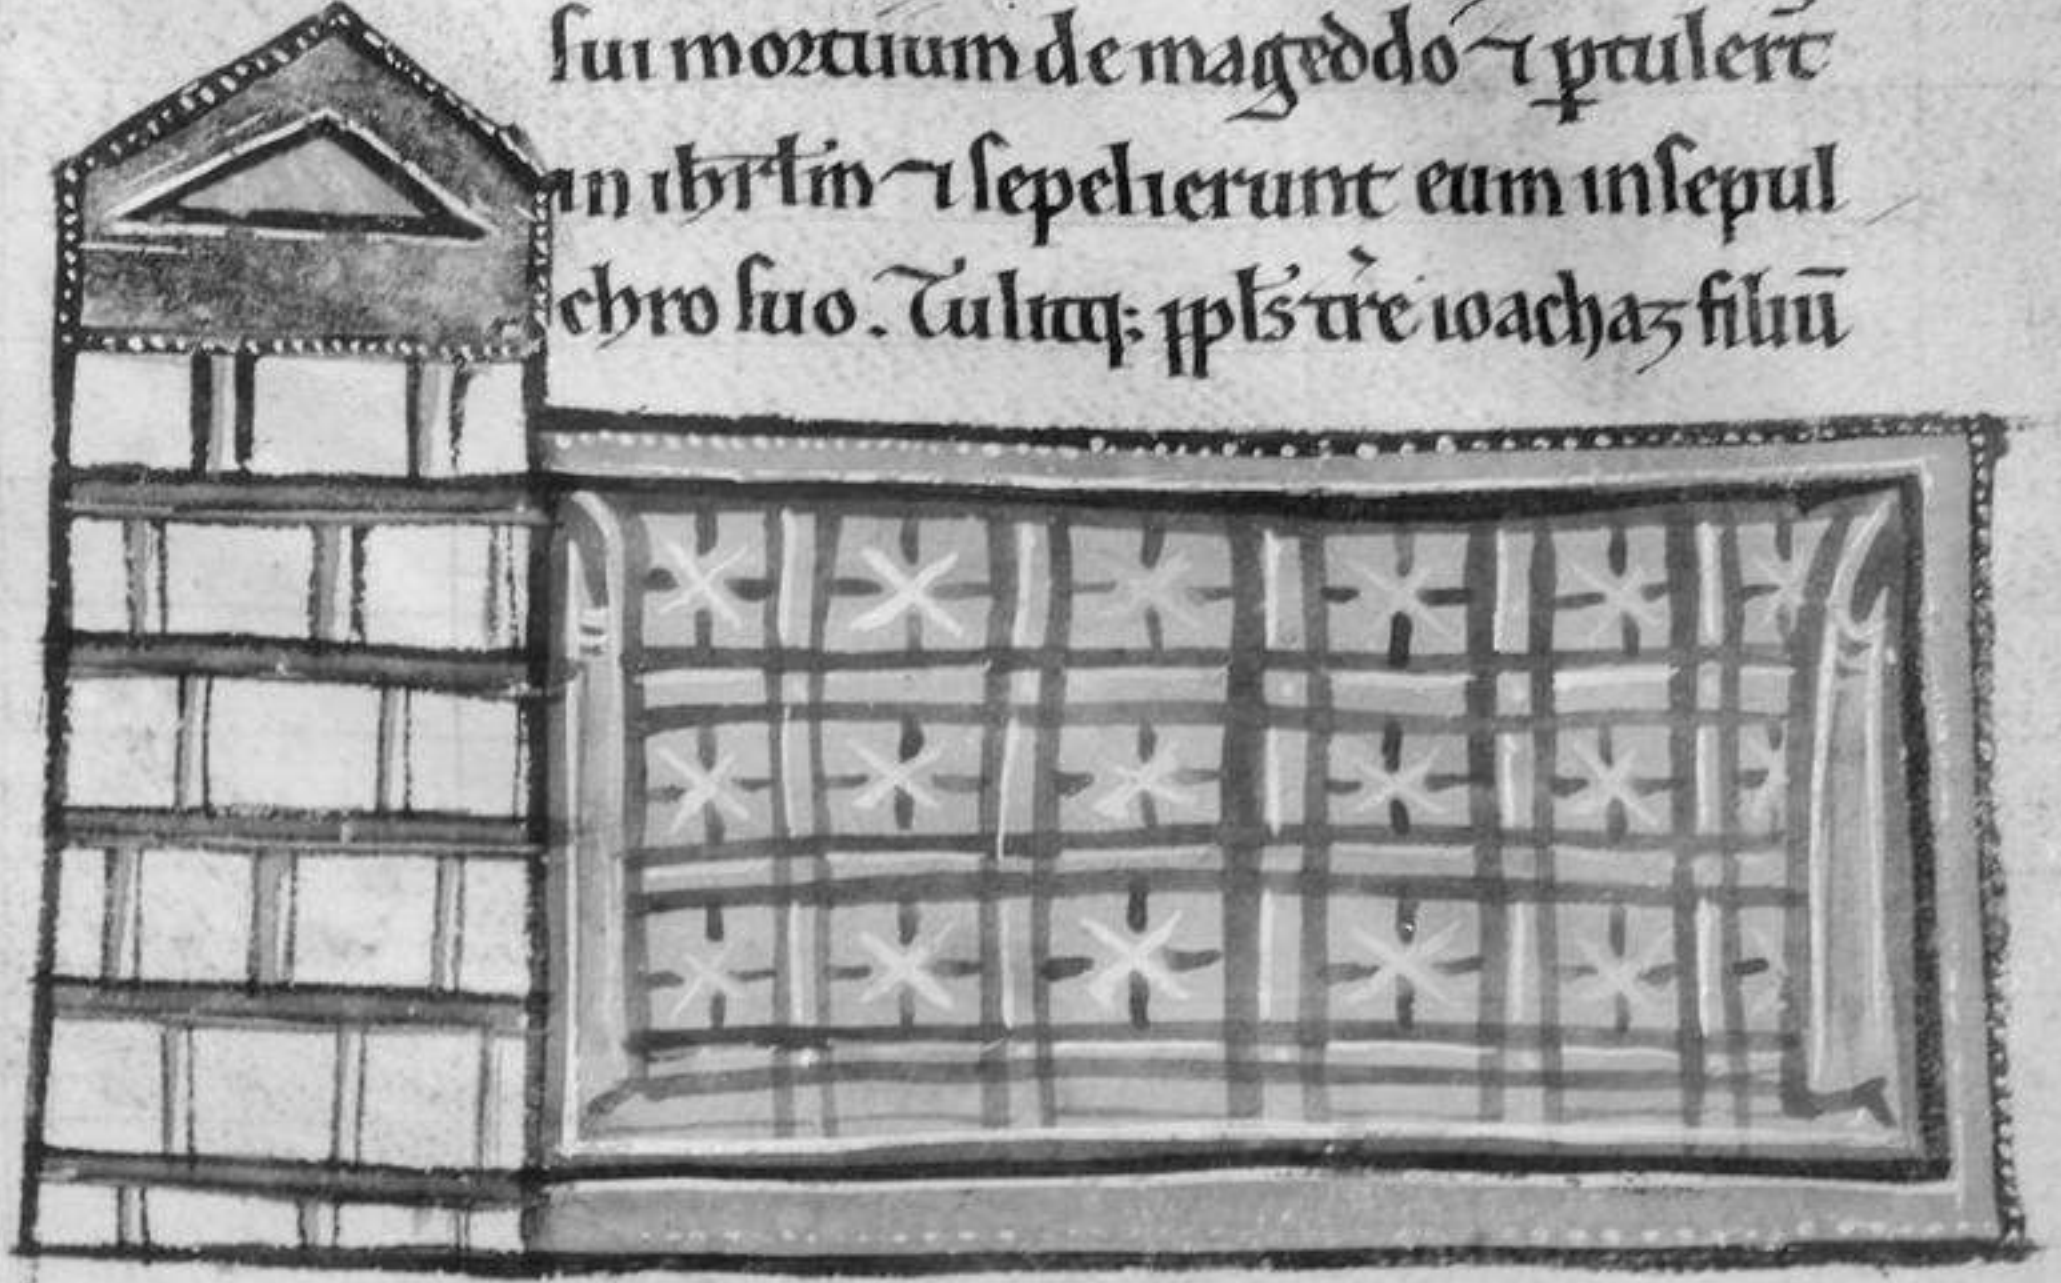 sui mortuum de mageddo ⁊ ꝑtuler̄t
in ihrl̄m ⁊ sepelierunt eum insepul
chro suo. Tulitq; ppl̄s tr̄e ioachaz filiū